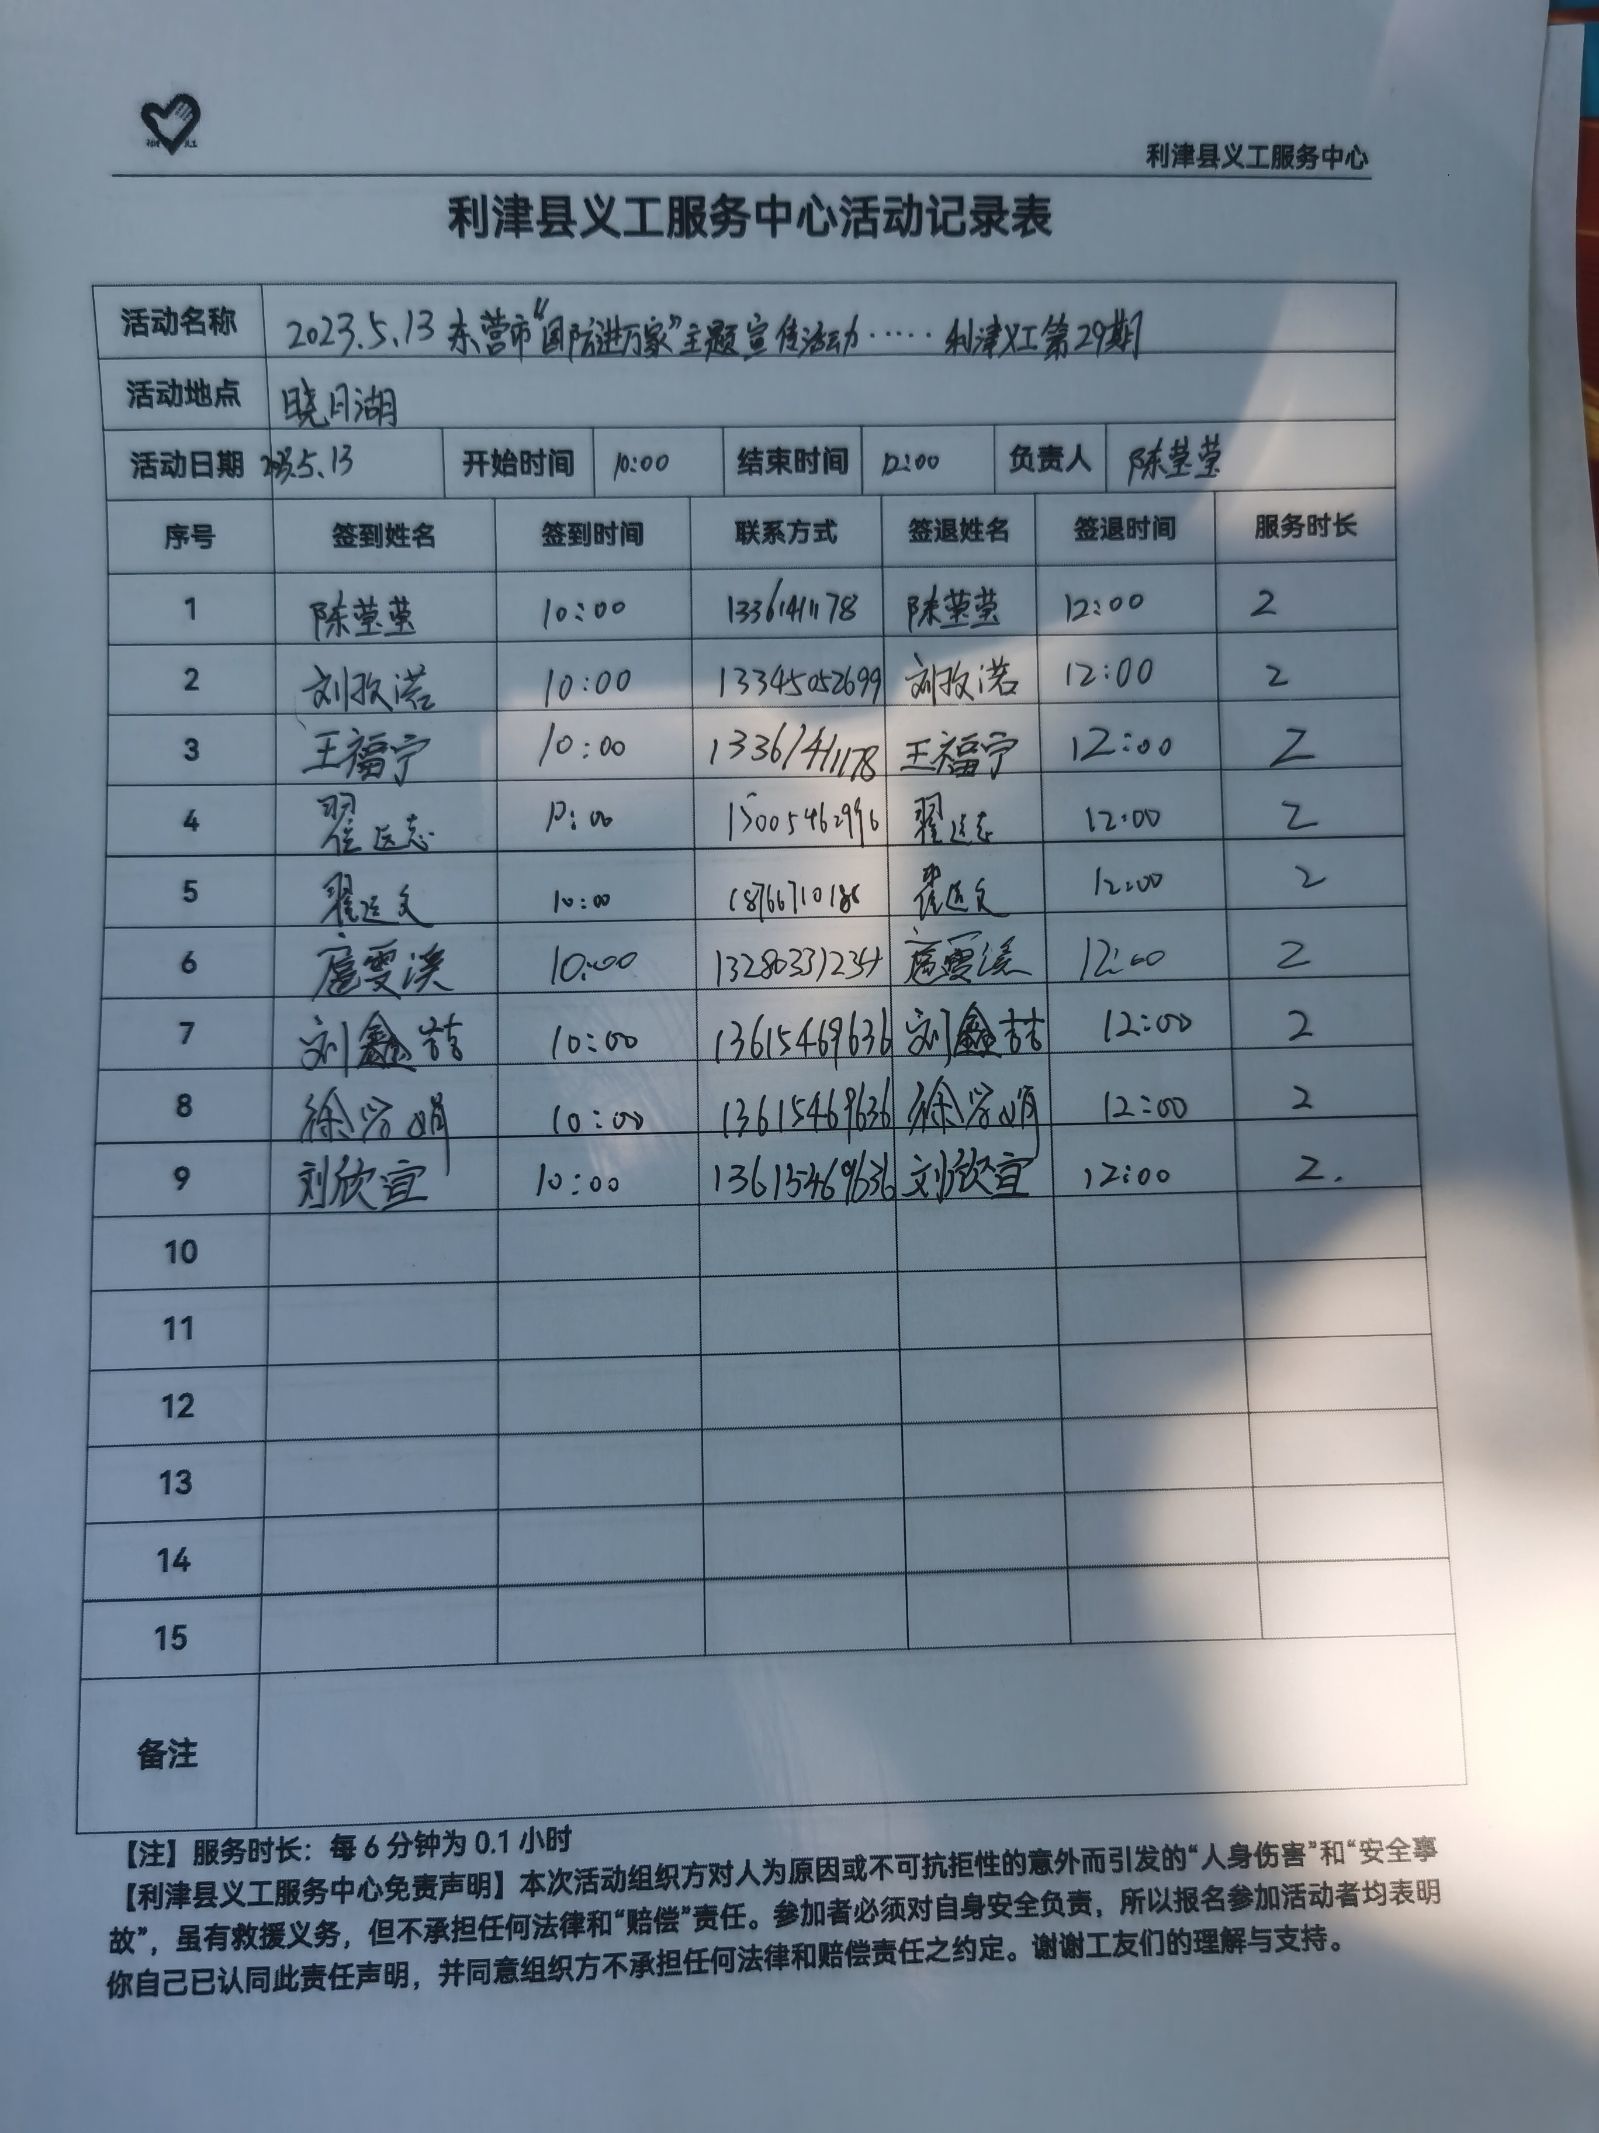 利津县义工服务中心
利津县义工服务中心活动记录表
活动名称 2023.5.13东营市“国防进万家”主题宣传活动……利津义工第29期
活动地点 晓月湖
活动日期 2023.5.13 开始时间 10:00 结束时间 12:00 负责人 陈莹莹
序号 签到姓名 签到时间 联系方式 签退姓名 签退时间 服务时长
1 陈莹莹 10:00 13361411178 陈莹莹 12:00 2
2 刘孜诺 10:00 13345052699 刘孜诺 12:00 2
3 王福宁 10:00 13361411178 王福宁 12:00 2
4 翟运志 10:00 15005462996 翟运志 12:00 2
5 翟运文 10:00 18766710186 翟运文 12:00 2
6 扈雯淇 10:00 12:00 2
7 刘鑫喆 10:00 13615469636 刘鑫喆 12:00 2
8 10:00 13615469636 12:00 2
9 刘欣宜 10:00 13615469636 刘欣宜 12:00 2.
10
11
12
13
14
15
备注
【注】服务时长：每6分钟为0.1小时
【利津县义工服务中心免责声明】本次活动组织方对人为原因或不可抗拒性的意外而引发的“人身伤害”和“安全事
故”，虽有救援义务，但不承担任何法律和“赔偿”责任。参加者必须对自身安全负责，所以报名参加活动者均表明
你自己已认同此责任声明，并同意组织方不承担任何法律和赔偿责任之约定。谢谢工友们的理解与支持。